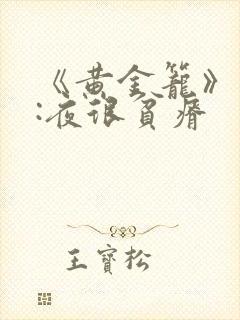 《黄金籠》
:夜很貧瘠
王寶松